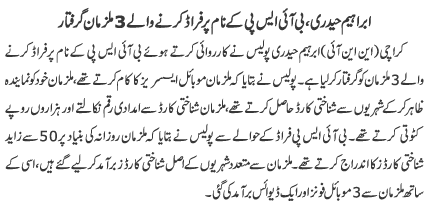 ابراہیم حیدری، بی آئی ایس پی کے نام پر فراڈ کرنے والے 3 ملزمان گرفتار
کراچی (این این آئی) ابراہیم حیدری پولیس نے کارروائی کرتے ہوئے بی آئی ایس پی کے نام پر فراڈ کرنے
والے 3 ملزمان کو گرفتار کرلیا ہے۔ پولیس نے بتایا کہ ملزمان موبائل ایسسریز کا کام کرتے تھے، ملزمان خود کو نمایندہ
ظاہر کر کے شہریوں سے شناختی کارڈ حاصل کرتے تھے، ملزمان شناختی کارڈ سے امدادی رقم نکالتے اور ہزاروں روپے
کٹوتی کرتے تھے۔ بی آئی ایس پی فراڈ کے حوالے سے پولیس نے بتایا کہ ملزمان روزانہ کی بنیاد پر 50 سے زاید
شناختی کارڈز کا اندراج کرتے تھے۔ ملزمان سے متعدد شہریوں کے اصل شناختی کارڈز برآمد کرلیے گئے ہیں، اسی کے
ساتھ ملزمان سے 3 موبائل فونز اور ایک ڈیوائس برآمد کی گئی۔